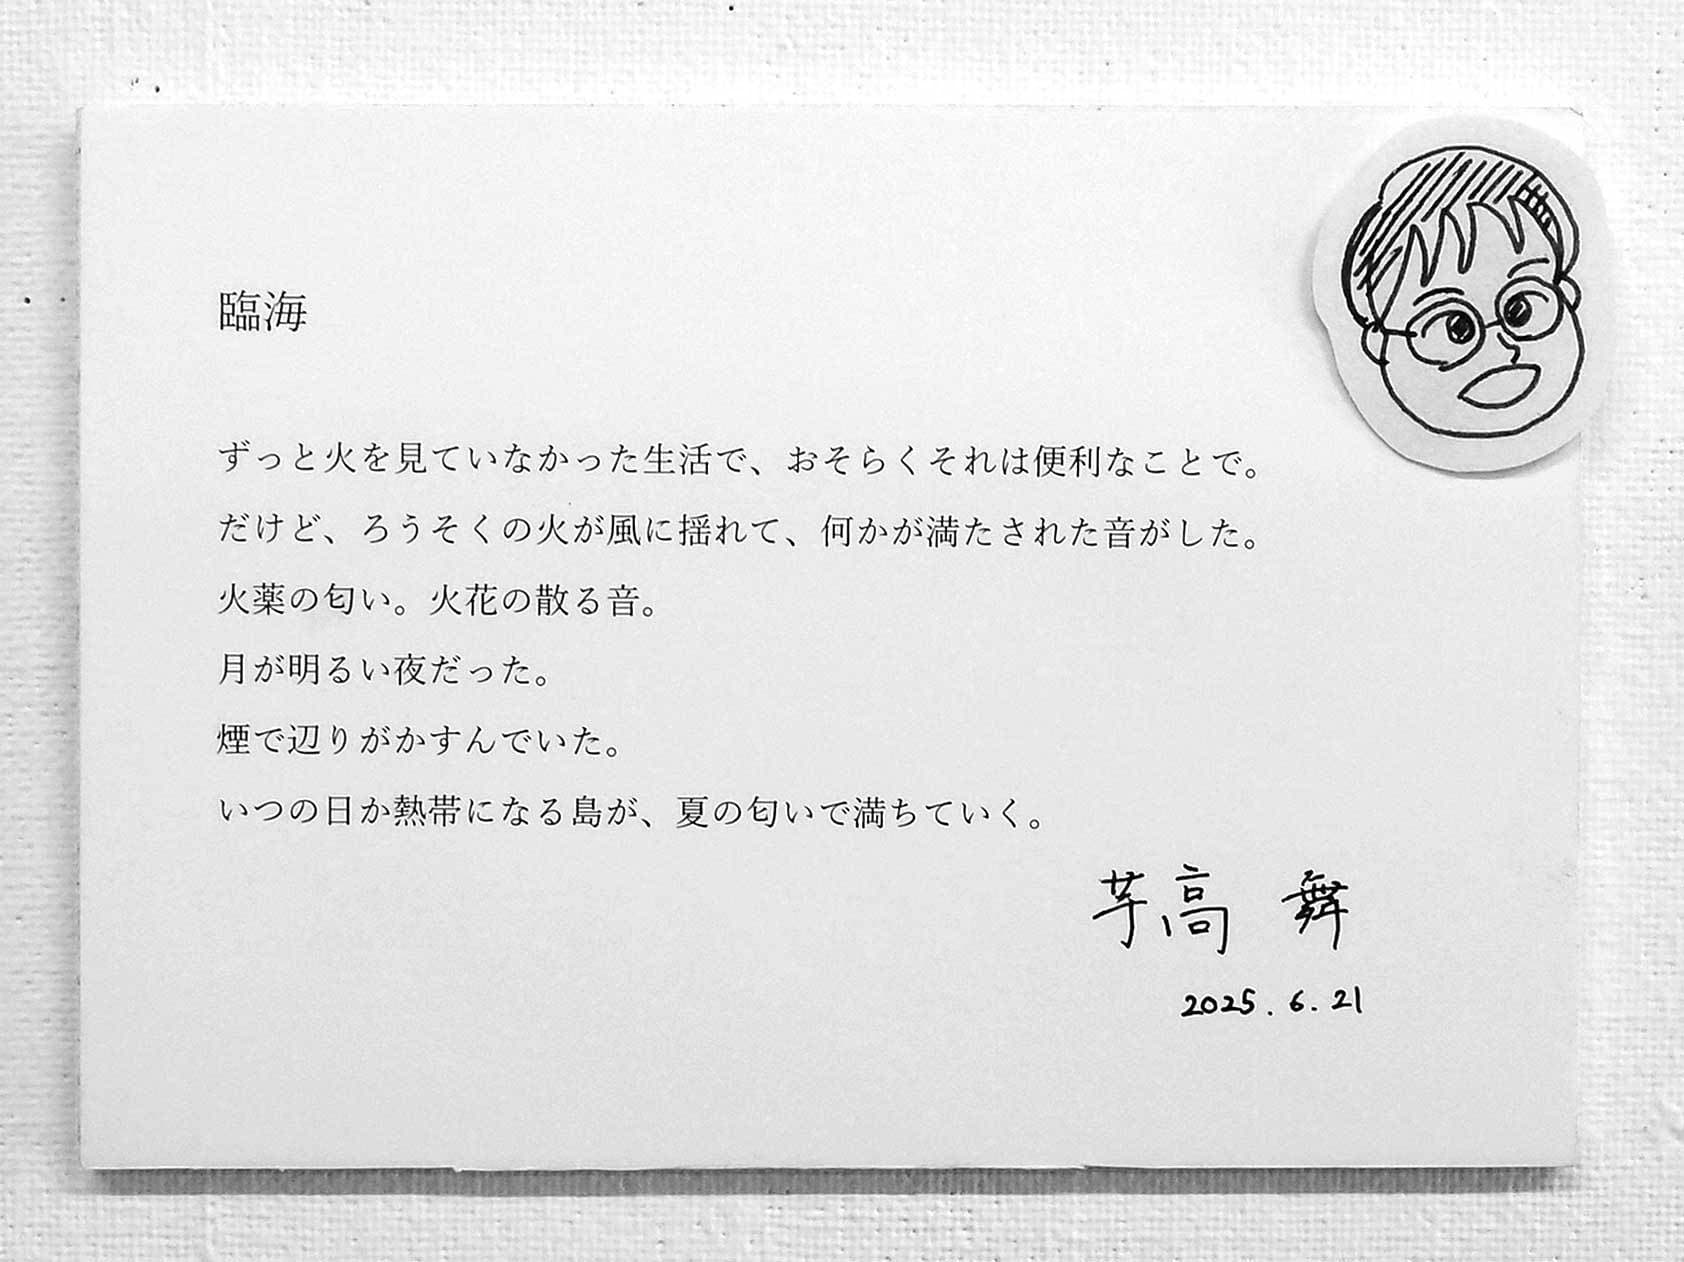 臨海
ずっと火を見ていなかった生活で、おそらくそれは便利なことで。
だけど、ろうそくの火が風に揺れて、何かが満たされた音がした。
火薬の匂い。火花の散る音。
月が明るい夜だった。
煙で辺りがかすんでいた。
いつの日か熱帯になる島が、夏の匂いで満ちていく。
芋高 舞
2025.6.21